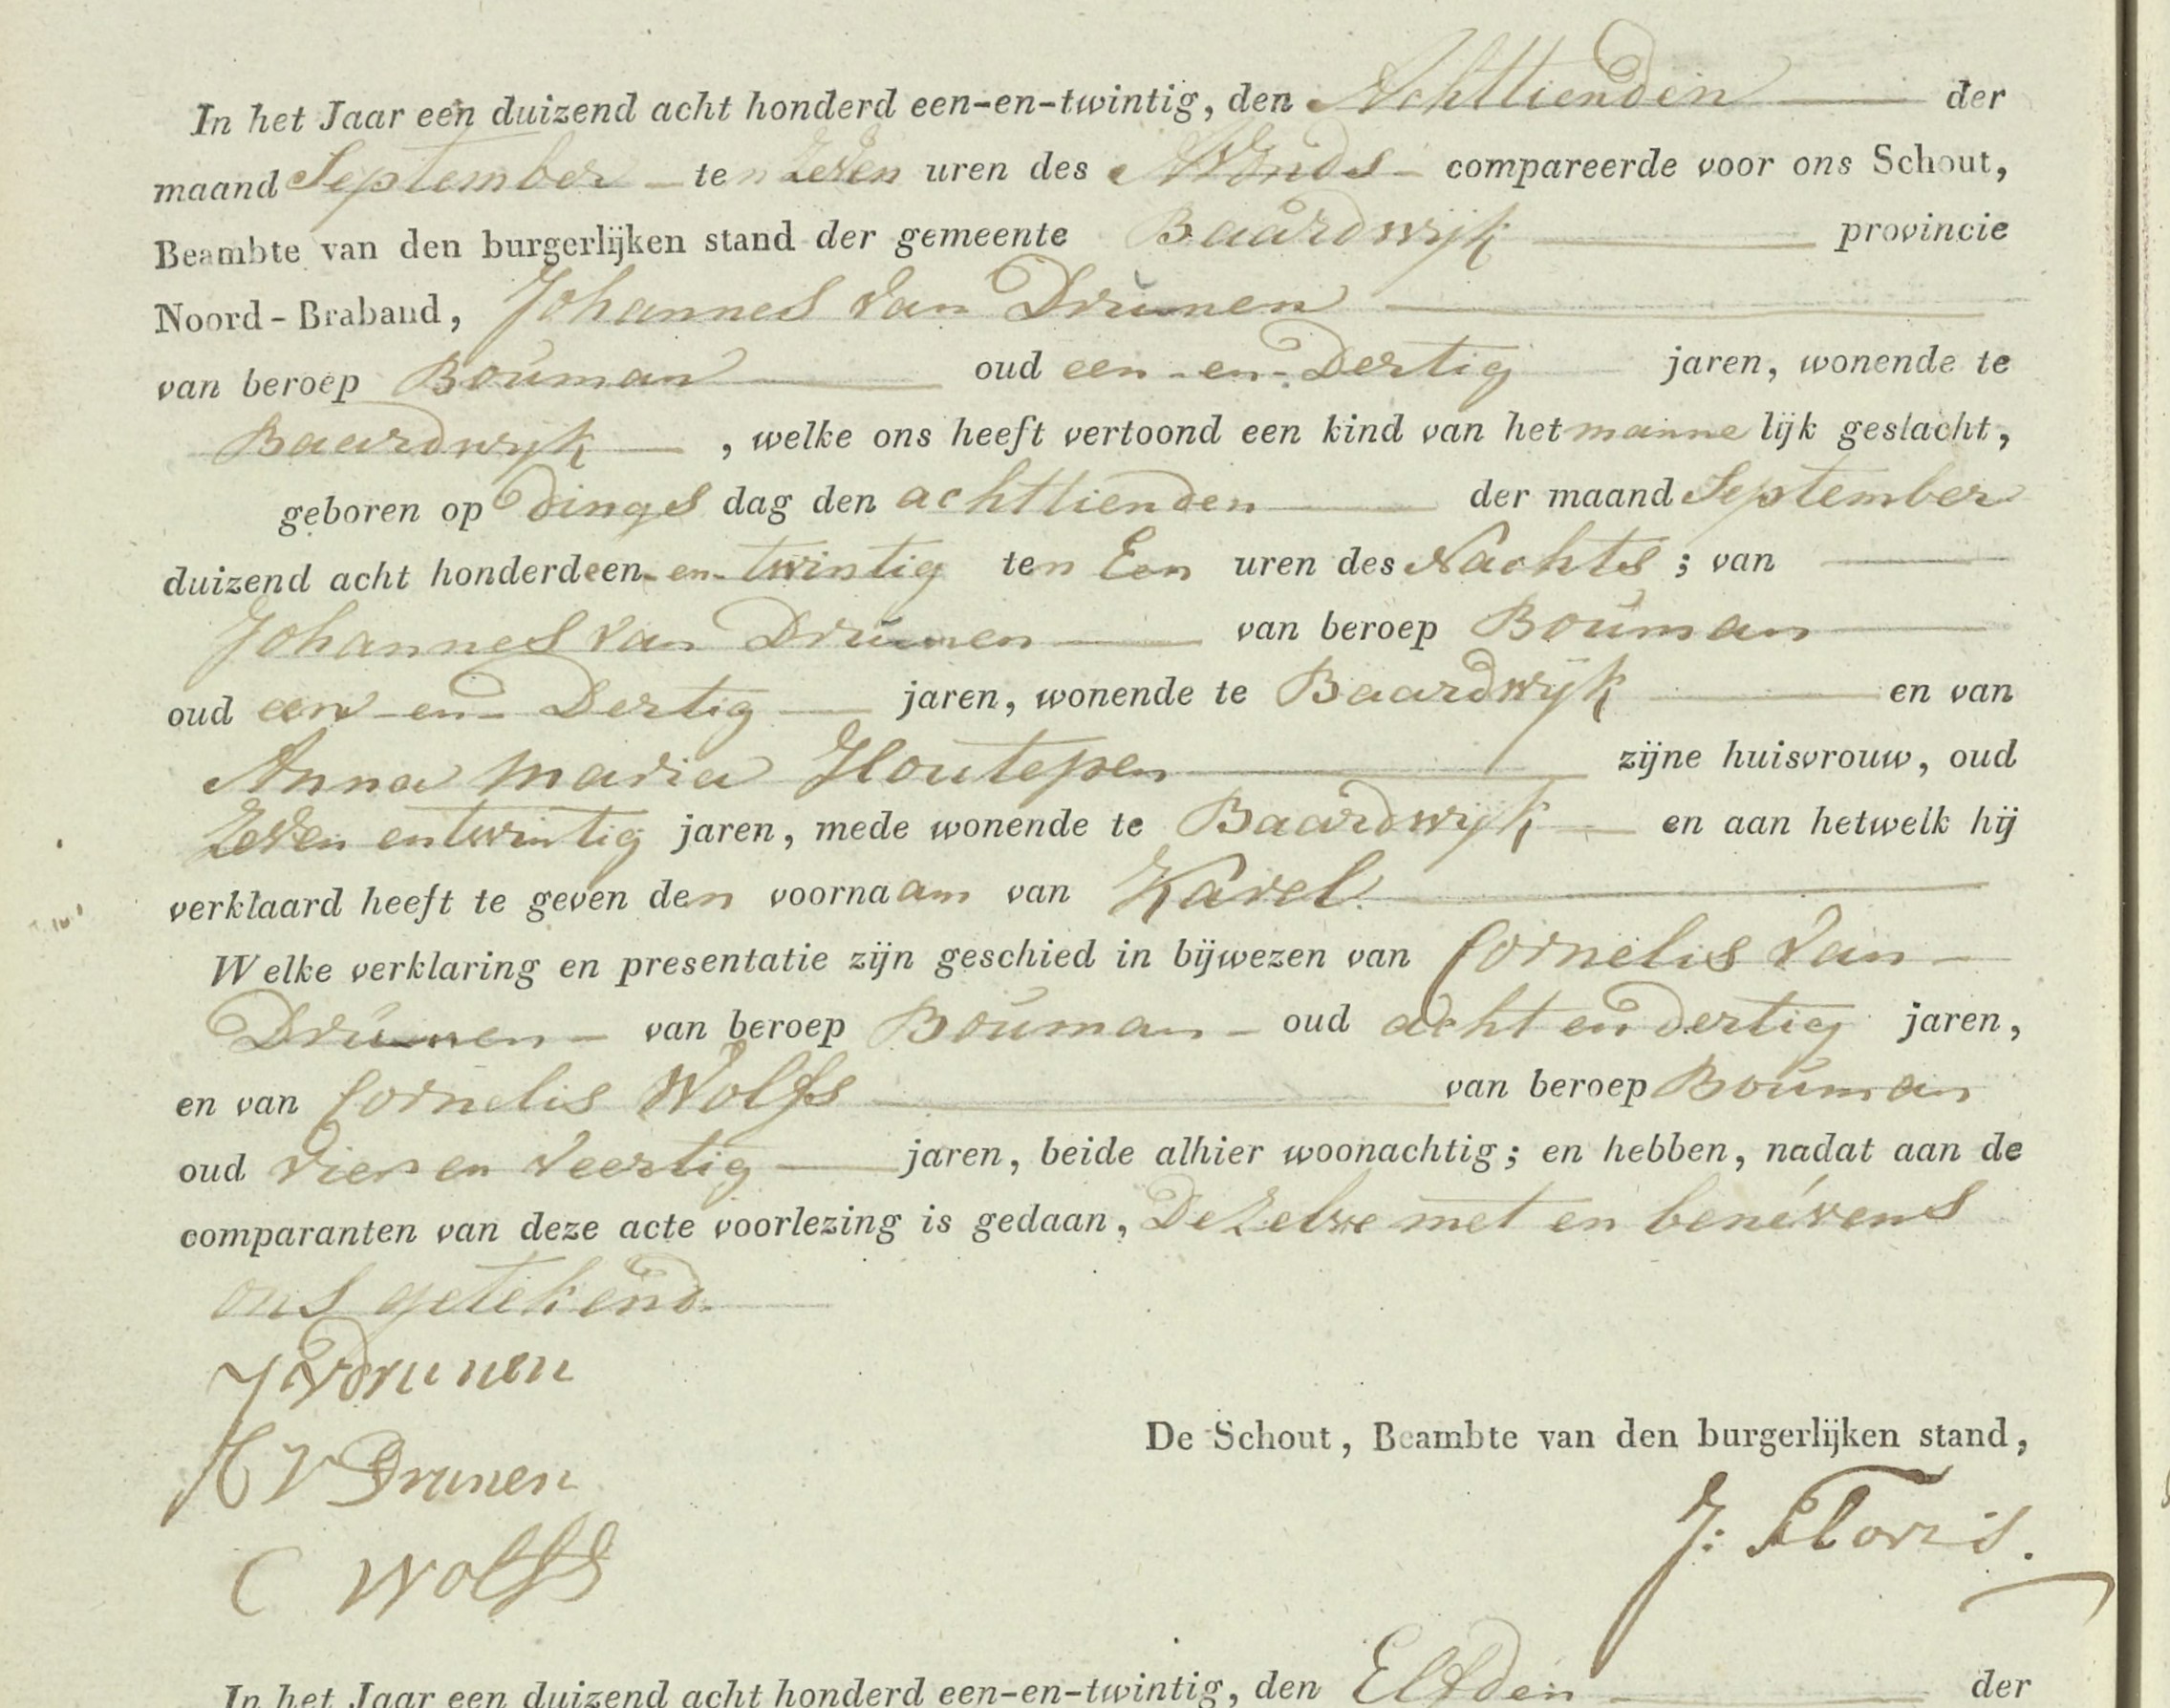 In het Jaar een duizend acht honderd een-en-twintig, den Achttienden der
maand September ten zeven uren des Avonds compareerde voor ons Schout,
Beambte van den burgerlijken stand der gemeente Baardwijk provincie
Noord-Braband, Johannes van Drunen
van beroep Bouman oud een-en-Dertig jaren, wonende te
Baardwijk, welke ons heeft vertoond een kind van het mannelijk geslacht,
geboren op Dingsdag den achttienden der maand September
duizend acht honderd een-en-twintig ten Een uren des Nachts; van
Johannes van Drunen van beroep Bouman
oud een-en-Dertig jaren, wonende te Baardwijk en van
Anna Maria Houtepen zijne huisvrouw, oud
Zeven entwintig jaren, mede wonende te Baardwijk en aan hetwelk hij
verklaard heeft te geven den voornaam van Karel
Welke verklaring en presentatie zijn geschied in bijwezen van Cornelis van
Drunen van beroep Bouman oud acht en dertig jaren,
en van Cornelis Wolfs van beroep Bouman
oud Vier en Veertig jaren, beide alhier woonachtig; en hebben, nadat aan de
comparanten van deze acte voorlezing is gedaan, Dezelve met en benévens
ons getekend.
J V Drunen
V Drunen
De Schout, Beambte van den burgerlijken stand,
J: Floris.
C Wolfs
In het Jaar een duizend acht honderd een-en-twintig, den Elfden der